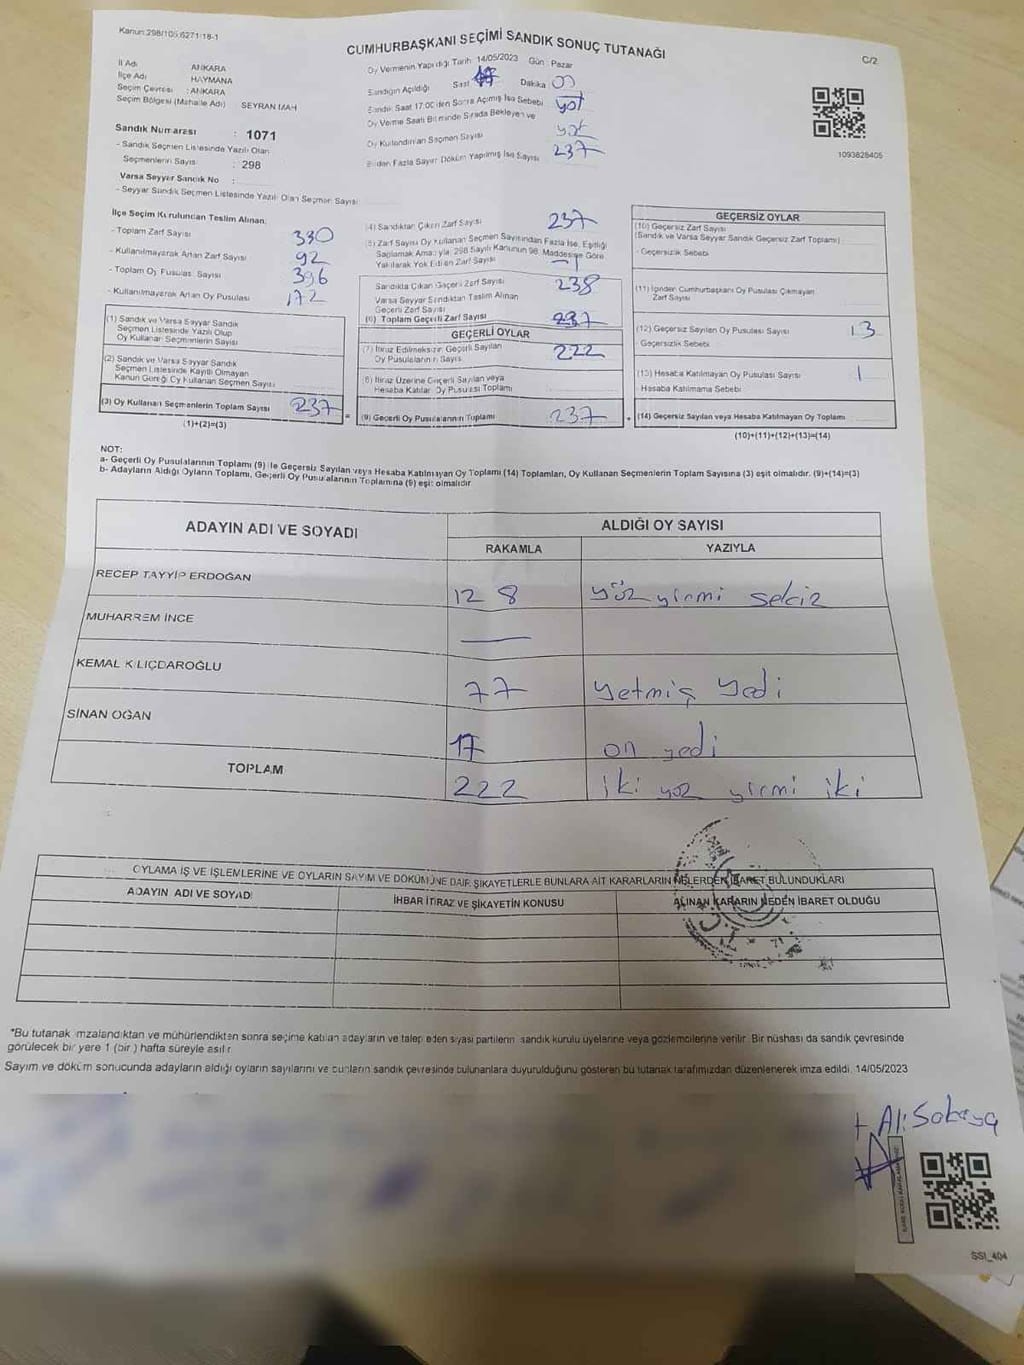 Kanun:298/105;6271/18-1
CUMHURBAŞKANI SEÇİMİ SANDIK SONUÇ TUTANAĞI
C/2
İl Adı ANKARA
İlçe Adı HAYMANA
Seçim Çevresi : ANKARA
Seçim Bölgesi (Mahalle Adı) SEYRAN MAH
Sandık Numarası : 1071
- Sandık Seçmen Listesinde Yazılı Olan
Seçmenlerin Sayısı : 298
Varsa Seyyar Sandık No :
- Seyyar Sandık Seçmen Listesinde Yazılı Olan Seçmen Sayısı:
Oy Vermenin Yapıldığı Tarih 14/05/2023 Gün Pazar
Sandığın Açıldığı Saat Dakika 00
Sandık Saat 17:00'den Sonra Açılmış İse Sebebi yok
Oy Verme Saati Bitiminde Sırada Bekleyen ve
Oy Kullandırılan Seçmen Sayısı yok
Birden Fazla Sayım Döküm Yapılmış İse Sayısı 237
1093828405
İlçe Seçim Kurulundan Teslim Alınan:
- Toplam Zarf Sayısı 330
- Kullanılmayarak Artan Zarf Sayısı 92
- Toplam Oy Pusulası Sayısı 396
- Kullanılmayarak Artan Oy Pusulası 172
(1) Sandık ve Varsa Seyyar Sandık
Seçmen Listesinde Yazılı Olup
Oy Kullanan Seçmenlerin Sayısı
(2) Sandık ve Varsa Seyyar Sandık
Seçmen Listesinde Kayıtlı Olmayan
Kanun Gereği Oy Kullanan Seçmen Sayısı
(3) Oy Kullanan Seçmenlerin Toplam Sayısı 237
(1)+(2)=(3)
(4) Sandıktan Çıkan Zarf Sayısı 237
(5) Zarf Sayısı Oy Kullanan Seçmen Sayısından Fazla İse, Eşitliği
Sağlamak Amacıyla, 298 Sayılı Kanunun 98. Maddesine Göre
Yakılarak Yok Edilen Zarf Sayısı -1
Sandıkta Çıkan Geçerli Zarf Sayısı 238
Varsa Seyyar Sandıktan Teslim Alınan
Geçerli Zarf Sayısı
(6) Toplam Geçerli Zarf Sayısı 237
GEÇERLİ OYLAR
(7) İtiraz Edilmeksizin Geçerli Sayılan
Oy Pusulalarının Sayısı 222
(8) İtiraz Üzerine Geçerli Sayılan veya
Hesaba Katılan Oy Pusulası Toplamı
(9) Geçerli Oy Pusulalarının Toplamı 237
GEÇERSİZ OYLAR
(10) Geçersiz Zarf Sayısı
(Sandık ve Varsa Seyyar Sandık Geçersiz Zarf Toplamı)
- Geçersizlik Sebebi
(11) İçinden Cumhurbaşkanı Oy Pusulası Çıkmayan
Zarf Sayısı
(12) Geçersiz Sayılan Oy Pusulası Sayısı 13
- Geçersizlik Sebebi
(13) Hesaba Katılmayan Oy Pusulası Sayısı 1
Hesaba Katılmama Sebebi
(14) Geçersiz Sayılan veya Hesaba Katılmayan Oy Toplamı
(10)+(11)+(12)+(13)=(14)
NOT:
a- Geçerli Oy Pusulalarının Toplamı (9) ile Geçersiz Sayılan veya Hesaba Katılmayan Oy Toplamı (14) Toplamları, Oy Kullanan Seçmenlerin Toplam Sayısına (3) eşit olmalıdır. (9)+(14)=(3)
b- Adayların Aldığı Oyların Toplamı, Geçerli Oy Pusulalarının Toplamına (9) eşit olmalıdır
ADAYIN ADI VE SOYADI
ALDIĞI OY SAYISI
RAKAMLA YAZIYLA
RECEP TAYYİP ERDOĞAN 128 yüz yirmi sekiz
MUHARREM İNCE —
KEMAL KILIÇDAROĞLU 77 yetmiş yedi
SİNAN OĞAN 17 on yedi
TOPLAM 222 iki yüz yirmi iki
OYLAMA İŞ VE İŞLEMLERİNE VE OYLARIN SAYIM VE DÖKÜMÜNE DAİR ŞİKAYETLERLE BUNLARA AİT KARARLARIN NELERDEN İBARET BULUNDUKLARI
ADAYIN ADI VE SOYADI İHBAR İTİRAZ VE ŞİKAYETİN KONUSU ALINAN KARARIN NEDEN İBARET OLDUĞU
T.C.
*Bu tutanak imzalandıktan ve mühürlendikten sonra seçime katılan adayların ve talep eden siyasi partilerin sandık kurulu üyelerine veya gözlemcilerine verilir. Bir nüshası da sandık çevresinde
görülecek bir yere 1 (bir) hafta süreyle asılır.
Sayım ve döküm sonucunda adayların aldığı oyların sayılarını ve bunların sandık çevresinde bulunanlara duyurulduğunu gösteren bu tutanak tarafımızdan düzenlenerek imza edildi. 14/05/2023
Ali Sakaya
SSI_404